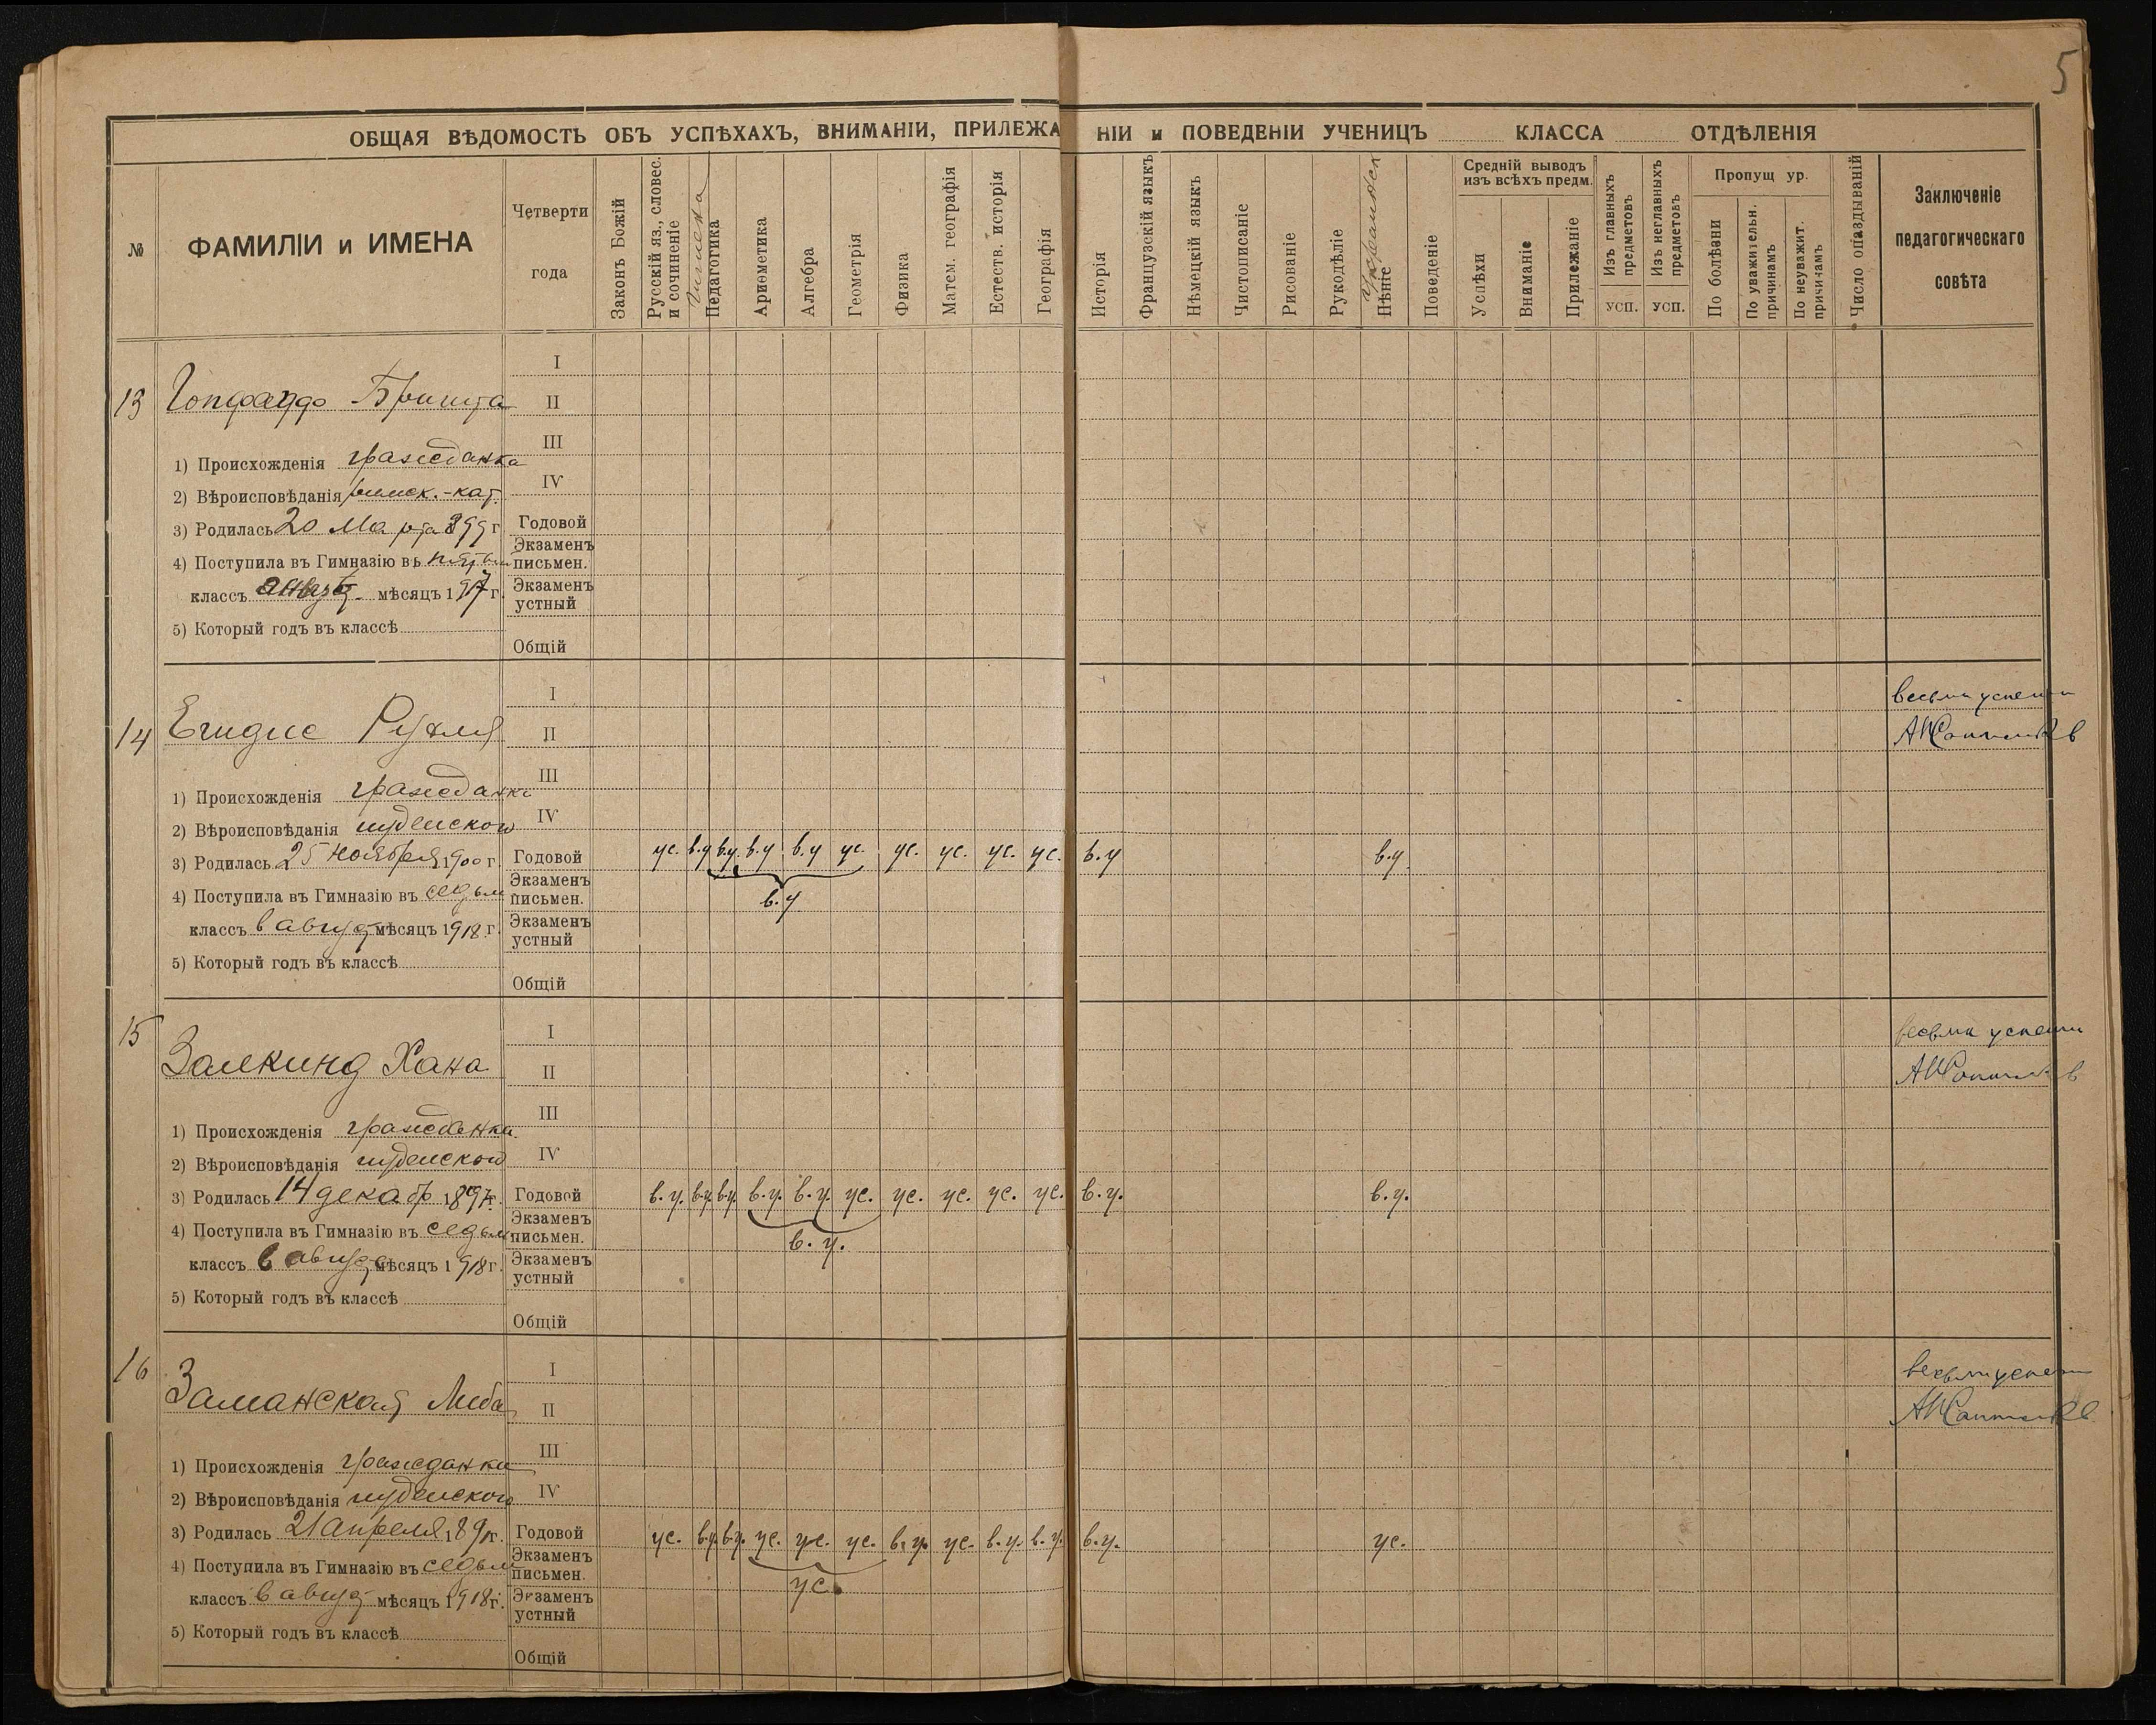 5
ОБЩАЯ ВѢДОМОСТЬ ОБЪ УСПѢХАХЪ, ВНИМАНІИ, ПРИЛЕЖА НІИ и ПОВЕДЕНІИ УЧЕНИЦЪ КЛАССА ОТДѢЛЕНІЯ
№
ФАМИЛІИ и ИМЕНА
Четверти
года
Законъ Божій
Русскій яз., словес.
и сочиненіе
Гигиена
Педагогика
Ариѳметика
Алгебра
Геометрія
Физика
Матем. географія
Естеств. исторія
Географія
Исторія
Французскій языкъ
Нѣмецкій языкъ
Чистописаніе
Рисованіе
Рукодѣліе
Пѣніе
Поведеніе
Средній выводъ
изъ всѣхъ предм.
Успѣхи
Вниманіе
Прилежаніе
Изъ главныхъ
предметовъ
усп.
Изъ неглавныхъ
предметовъ
усп.
Пропущ ур.
По болѣзни
По уважительн.
причинамъ
По неуважит.
причинамъ
Число опаздываній
Заключеніе
педагогическаго
совѣта
13
I
II
III
1) Происхожденія гражданка
IV
2) Вѣроисповѣданія римск.-кат.
3) Родилась 20 Марта 899 г
Годовой
Экзаменъ
4) Поступила въ Гимназію въ
письмен.
классъ мѣсяцъ 1917 г.
Экзаменъ
устный
5) Который годъ въ классѣ
Общій
14
I
весьма успешн
II
III
1) Происхожденія гражданка
IV
2) Вѣроисповѣданія иудейского
3) Родилась 25 ноября 1900 г.
Годовой ус. в.у в.у. в.у в.у ус. ус. ус. ус. ус. в.у в.у.
Экзаменъ
4) Поступила въ Гимназію въ седьм
письмен. в.у
классъ в август мѣсяцъ 1918 г.
Экзаменъ
устный
5) Который годъ въ классѣ
Общій
15
I
весьма успешн
Залкинд Хана
II
III
1) Происхожденія гражданка
IV
2) Вѣроисповѣданія иудейского
3) Родилась 14 декабр 1897 г.
Годовой в.у. в.у. в.у. в.у. в.у. ус. ус. ус. ус. ус. в.у. в.у.
Экзаменъ
4) Поступила въ Гимназію въ седьм
письмен. в.у.
классъ в август мѣсяцъ 1918 г.
Экзаменъ
устный
5) Который годъ въ классѣ
Общій
16
I
весьма успешн
Заманская Либа
II
III
1) Происхожденія гражданка
IV
2) Вѣроисповѣданія иудейского
3) Родилась 21 апреля 189 г.
Годовой ус. в.у. в.у. ус. ус. ус. в.у. ус. в.у. в.у. в.у. ус.
Экзаменъ
4) Поступила въ Гимназію въ седьм
письмен. ус.
классъ в август мѣсяцъ 1918 г.
Экзаменъ
устный
5) Который годъ въ классѣ
Общій